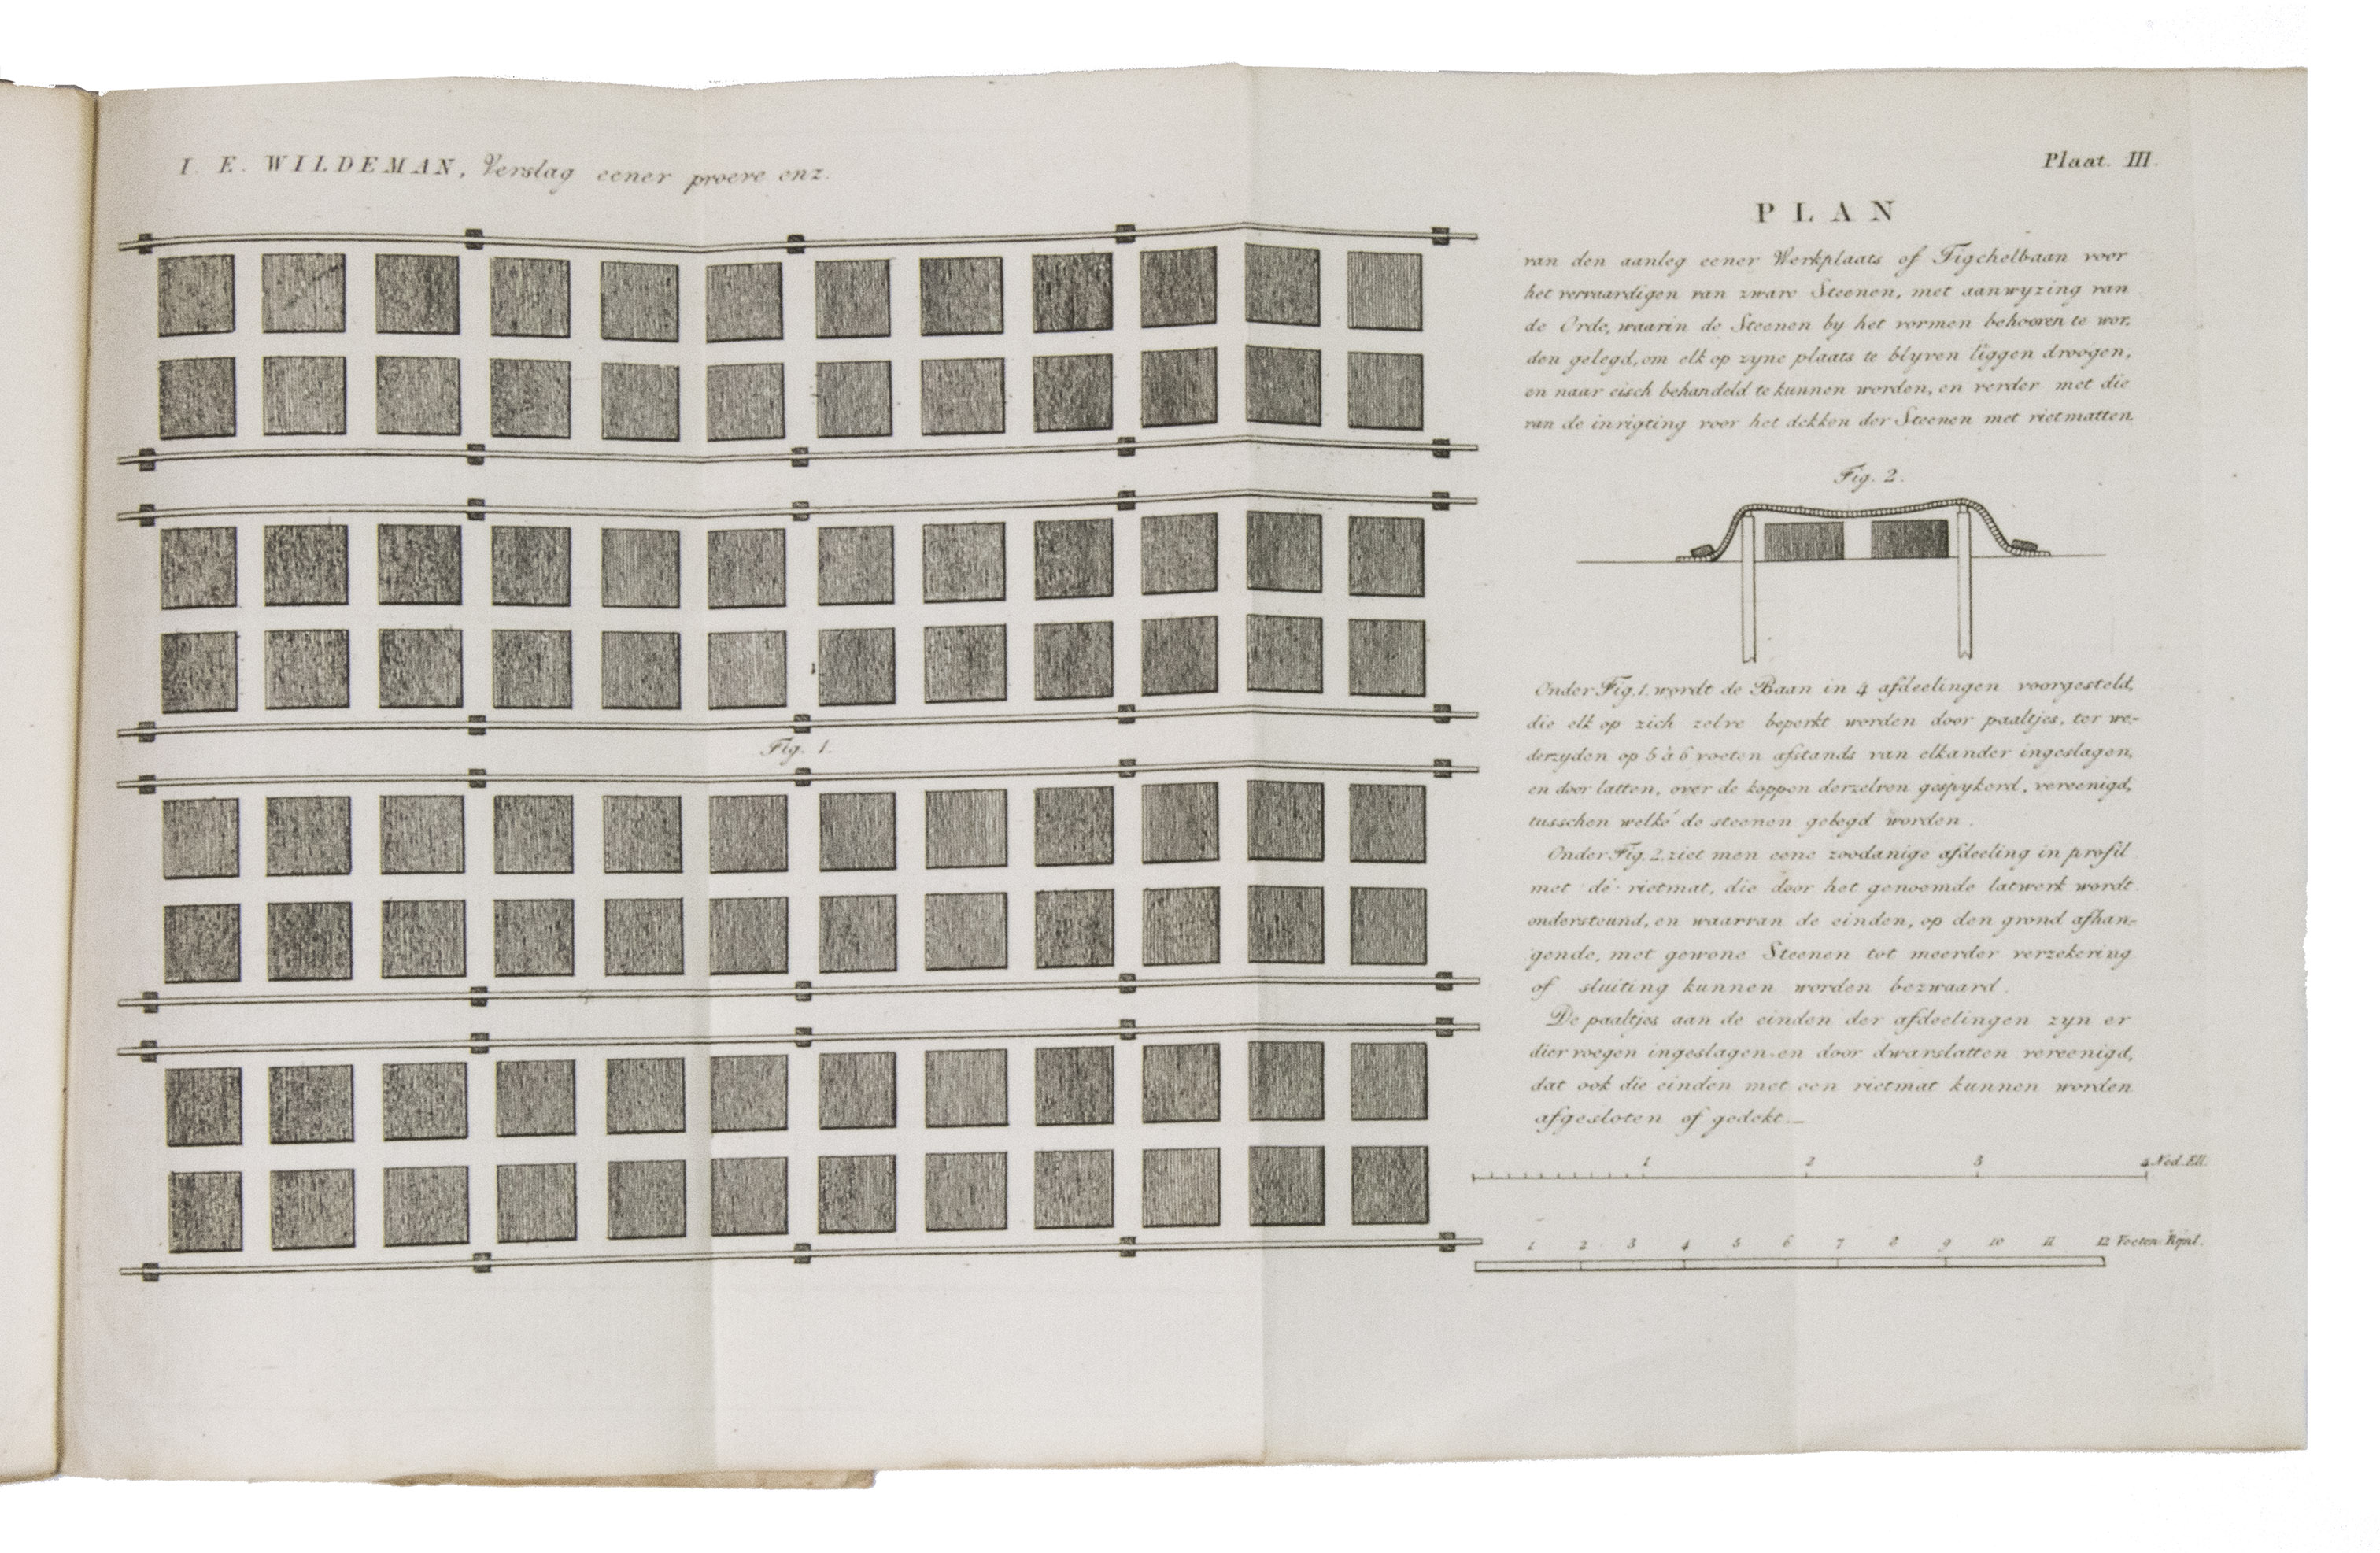 I. E. WILDEMAN, Verslag eener proeve enz.
Plaat. III.
PLAN
van den aanleg eener Werkplaats of Tigchelbaan voor
het vervaardigen van zware Steenen, met aanwyzing van
de Orde, waarin de Steenen by het vormen behooren te wor-
den gelegd, om elk op zyne plaats te blyven liggen droogen,
en naar eisch behandeld te kunnen worden, en verder met die
van de inrigting voor het dekken der Steenen met rietmatten.
Fig. 2.
Onder Fig. 1. wordt de Baan in 4 afdeelingen voorgesteld,
die elk op zich zelve beperkt worden door paaltjes, ter we-
derzyden op 5 à 6 voeten afstands van elkander ingeslagen,
en door latten, over de koppen derzelven gespykerd, vereenigd,
tusschen welke de steenen gelegd worden.
Onder Fig. 2. ziet men eene zoodanige afdeeling in profil
met de rietmat, die door het genoemde latwerk wordt
ondersteund, en waarvan de einden, op den grond afhan-
gende, met gewone Steenen tot meerder verzekering
of sluiting kunnen worden bezwaard.
De paaltjes aan de einden der afdeelingen zyn er
dier voegen ingeslagen en door dwarslatten vereenigd,
dat ook die einden met een rietmat kunnen worden
afgesloten of gedekt.—
Fig. 1.
1 2 3 4 Ned. Ell.
1 2 3 4 5 6 7 8 9 10 11 12 Voeten Rynl.